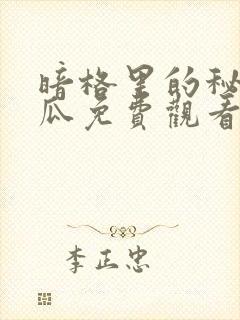 暗格里的秘
瓜免費觀看
李正忠